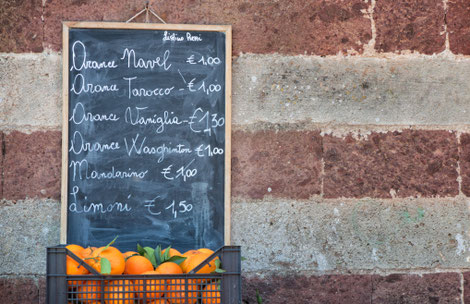 Listino Prezzi
Arance Navel € 1,00
Arance Tarocco - € 1,00
Arance Vaniglia - € 1,30
Arance Waschinton € 1,00
Mandarino € 1,00
Limoni € 1,50